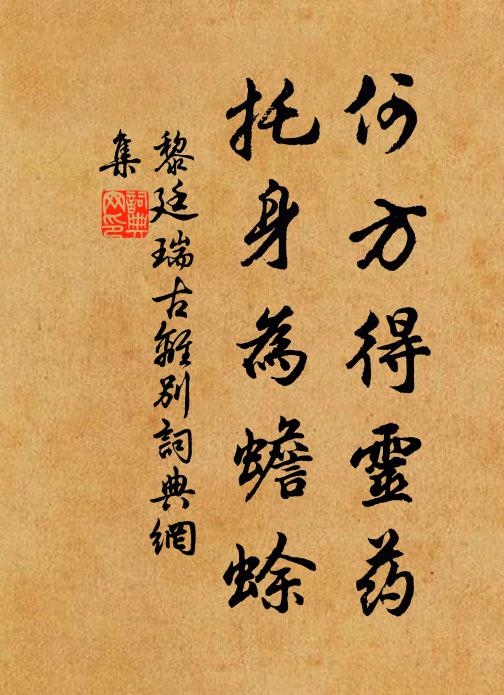 何方得靈药
托身為蟾蜍
黎廷瑞古離別詞典網
集
詞典
网印